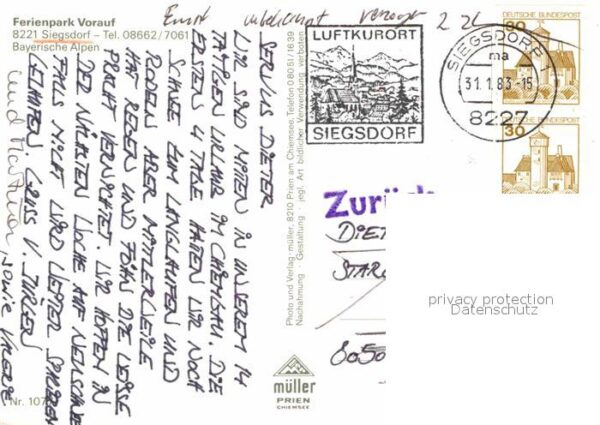 Ferienpark Vorauf
8221 Siegsdorf – Tel. 08662/7061
Bayerische Alpen
SERVUS DIETER
WIR SIND MITTEN IN UNSEREM 14
TÄTIGEN URLAUB IM CHIEMGAU. DIE
ERSTEN 4 TAGE HATTEN WIR NOCH
SCHNEE ZUM LANGLAUFEN UND
RODELN ABER MITLERWEILE
HAT REGEN UND FÖHN DIE WEISSE
PRACHT VERNICHTET. WIR HOFFEN IN
DER NÄCHSTEN WOCHE AUF NEUSCHNEE
FALLS NICHT WIRD WEITER SPAZIEREN
GELAUFEN GRUSS V. JÜRGEN
und
sowie
Nr. 107
Photo und Verlag · müller, 8210 Prien am Chiemsee, Telefon 0 80 51/16 39
Nachahmung · Gestaltung · jegl. Art bildlicher Verwendung verboten
müller
PRIEN
CHIEMSEE
verzogen
LUFTKURORT
SIEGSDORF
SIEGSDORF
ma
31.1.83-15
8227
DEUTSCHE BUNDESPOST
30
DEUTSCHE BUNDESPOST
30
Zurück
DIET
STAR
8050
privacy protection
Datenschutz